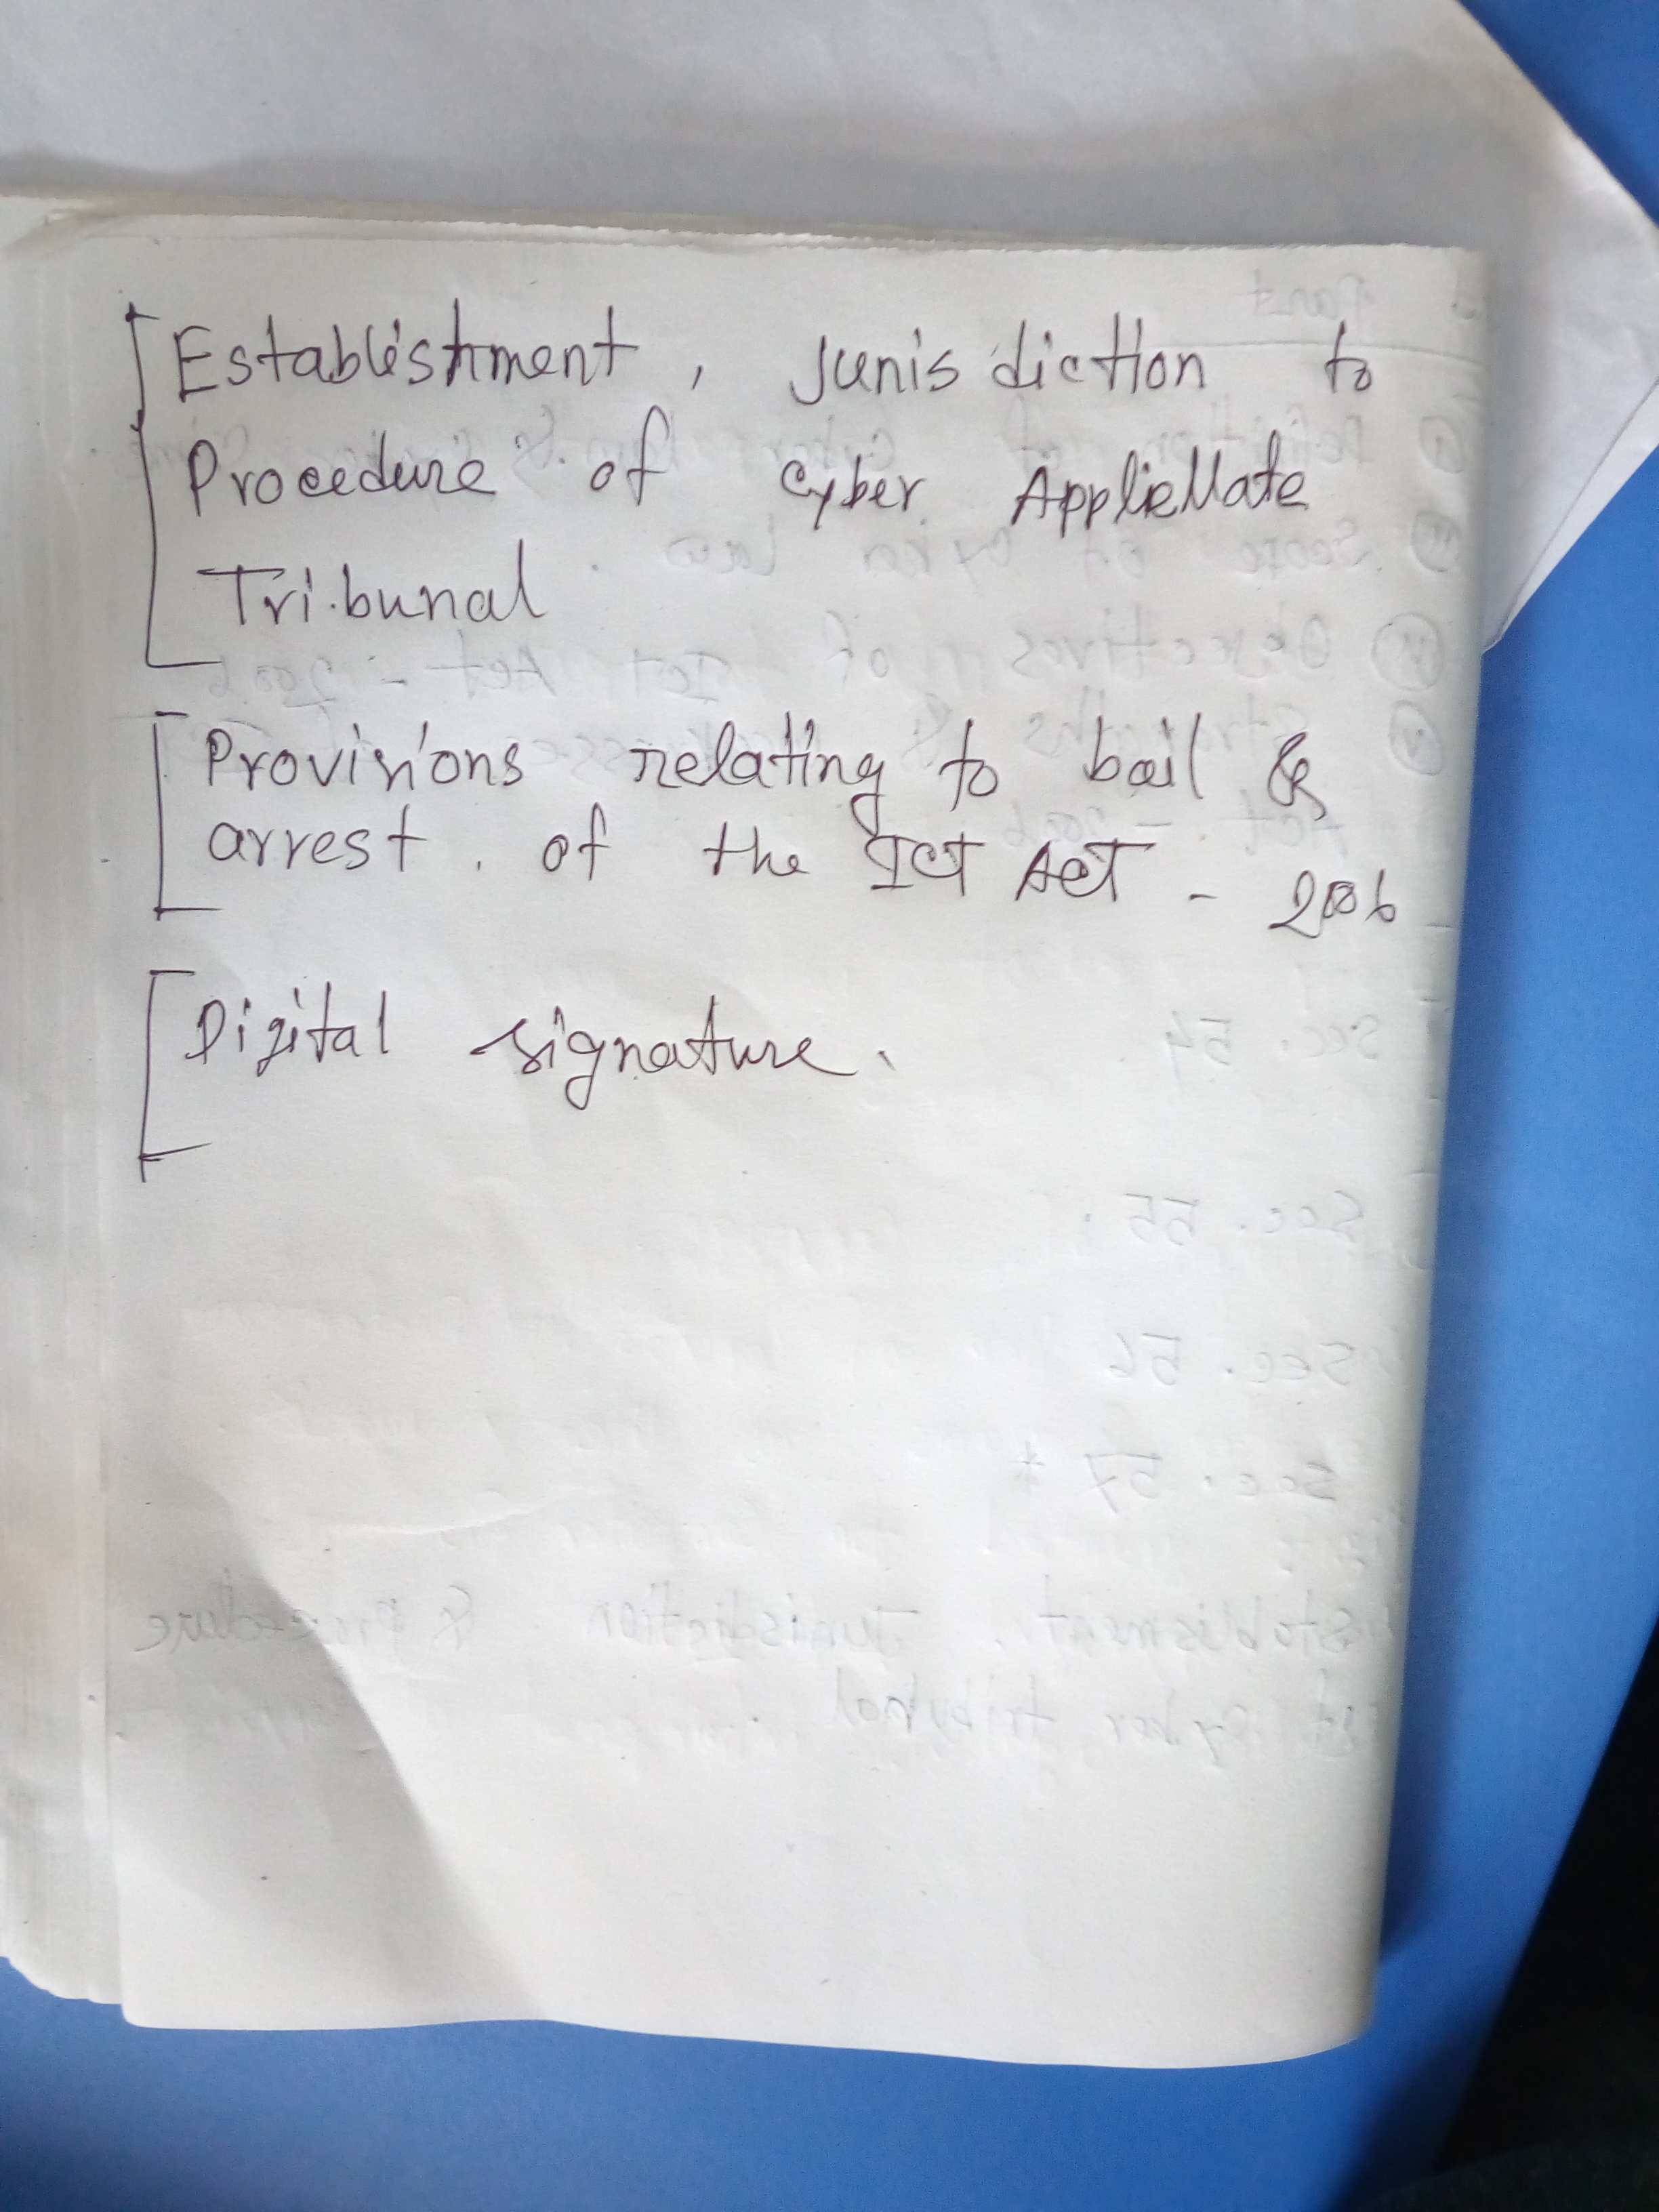 Establishment, Jurisdiction to
Procedure of Cyber Appliellate
Tribunal
Provisions relating to bail &
arrest. of the ICT ACT - 2006
Digital signature.